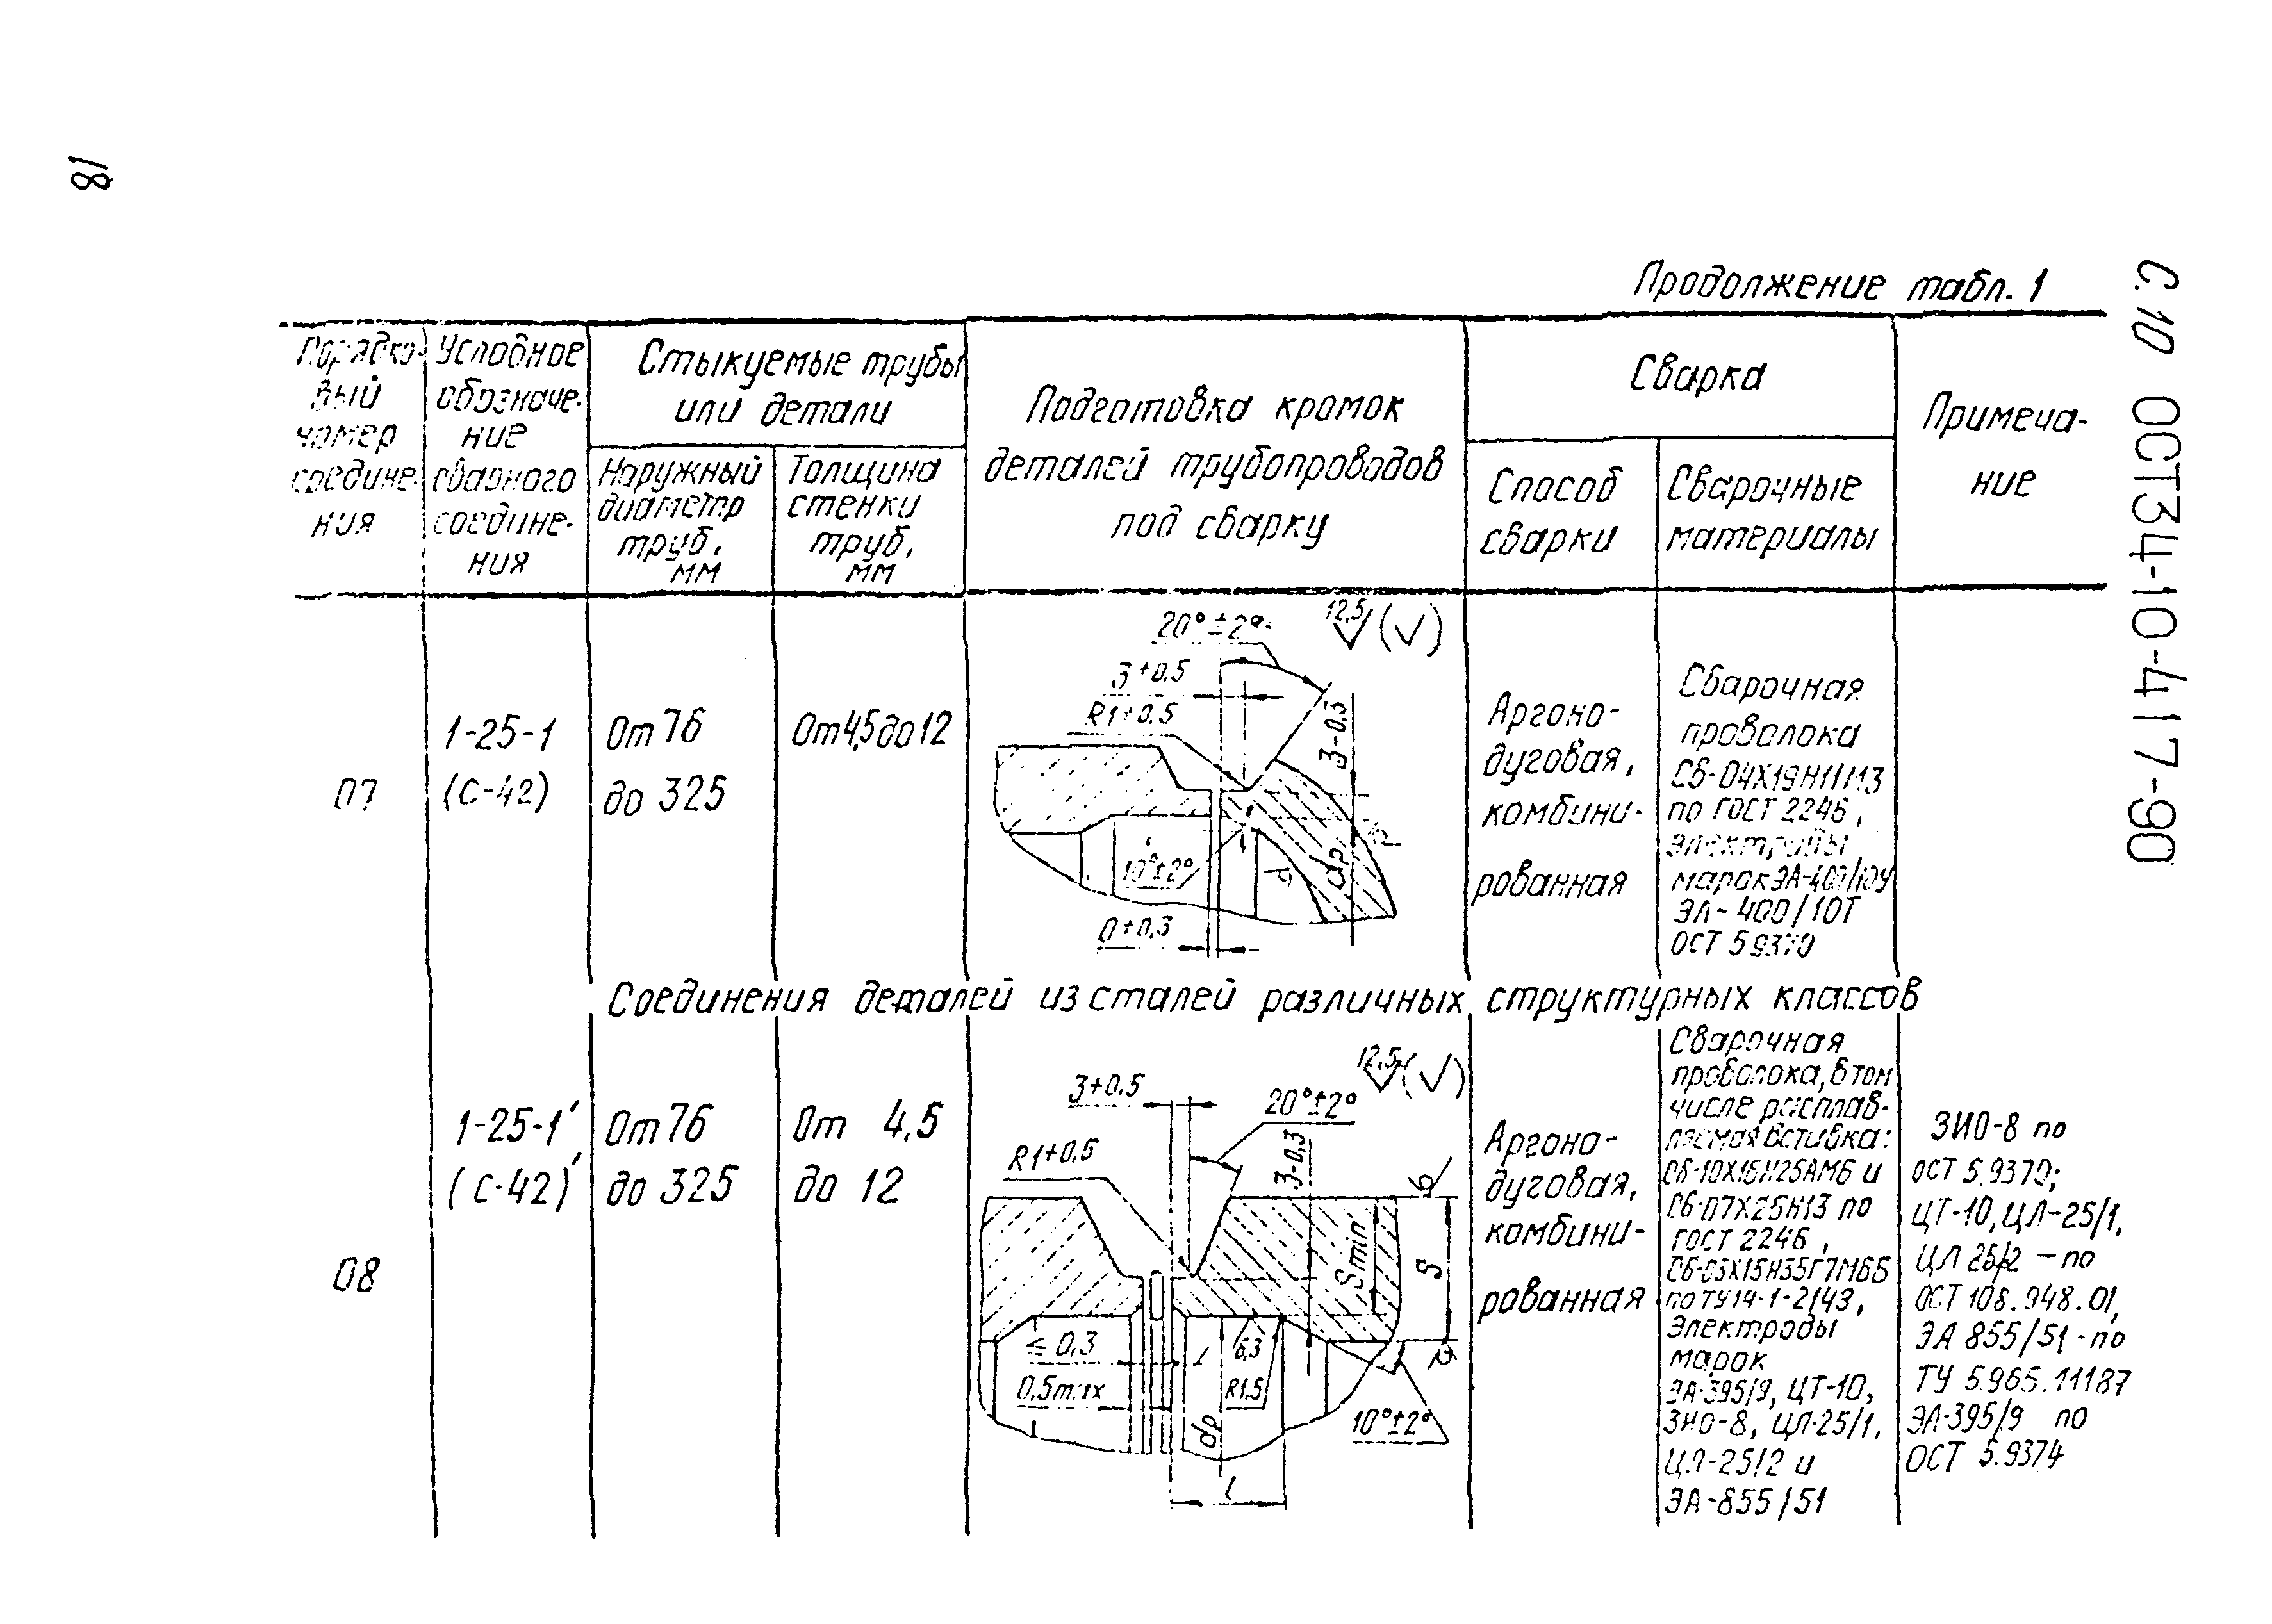 81
Продолжение табл. 1
С. 10 ОСТ34-10-417-90
Порядко-
вый
номер
соедине-
ния
Условное
обозначе-
ние
сварного
соедине-
ния
Стыкуемые трубы
или детали
Наружный
диаметр
труб,
мм
Толщина
стенки
труб,
мм
Подготовка кромок
деталей трубопроводов
под сварку
Сварка
Способ
сварки
Сварочные
материалы
Примеча-
ние
07
1-25-1
(С-42)
От 76
до 325
От 4,5 до 12
20°±2°
12,5
3+0.5
R1+0.5
3-0,3
10°±2°
dp
0+0,3
Аргоно-
дуговая,
комбини-
рованная
Сварочная
проволока
Св-04Х19Н11М3
по ГОСТ 2246,
электроды
марок ЭА-400/10У
ЭА-400/10Т
ОСТ 5.9370
Соединения деталей из сталей различных структурных классов
08
1-25-1′
(С-42)′
От 76
до 325
От 4,5
до 12
12,5
3+0.5
20°±2°
R1+0,5
3-0,3
Smin
S
≤ 0,3
0,5max
6,3
R1.5
dp
10°±2°
l
Аргоно-
дуговая,
комбини-
рованная
Сварочная
проволока, в том
числе расплав-
ляемая вставка:
Св-10Х16Н25АМ6 и
Св-07Х25Н13 по
ГОСТ 2246,
Св-03Х15Н35Г7М6Б
по ТУ14-1-2143,
электроды
марок
ЭА-395/9, ЦТ-10,
ЗИО-8, ЦЛ-25/1,
ЦЛ-25/2 и
ЭА-855/51
ЗИО-8 по
ОСТ 5.9370;
ЦТ-10, ЦЛ-25/1,
ЦЛ 25/2 – по
ОСТ 108.948.01,
ЭА 855/51 - по
ТУ 5.965.11187
ЭА-395/9 по
ОСТ 5.9374